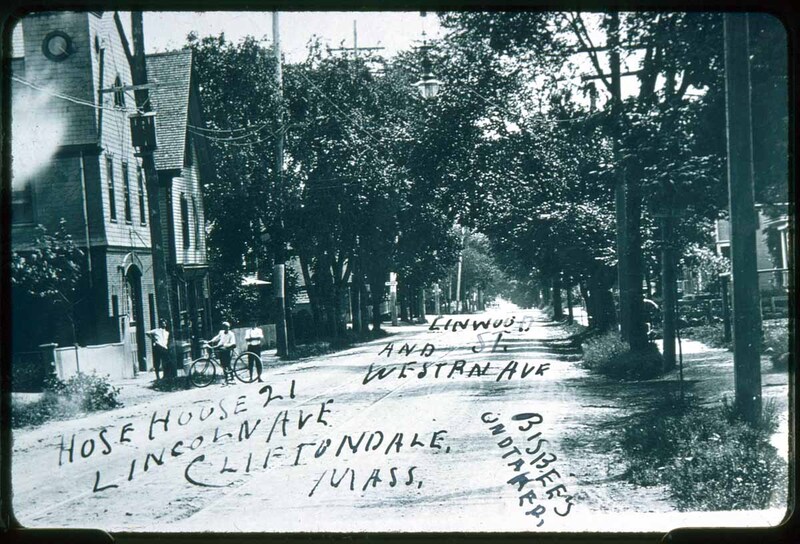 HOSE HOUSE 21
LINCOLN AVE
CLIFTONDALE,
MASS.
LINWOOD
AND St.
WESTRN AVE
BISBEE'S
UNDTAKER,